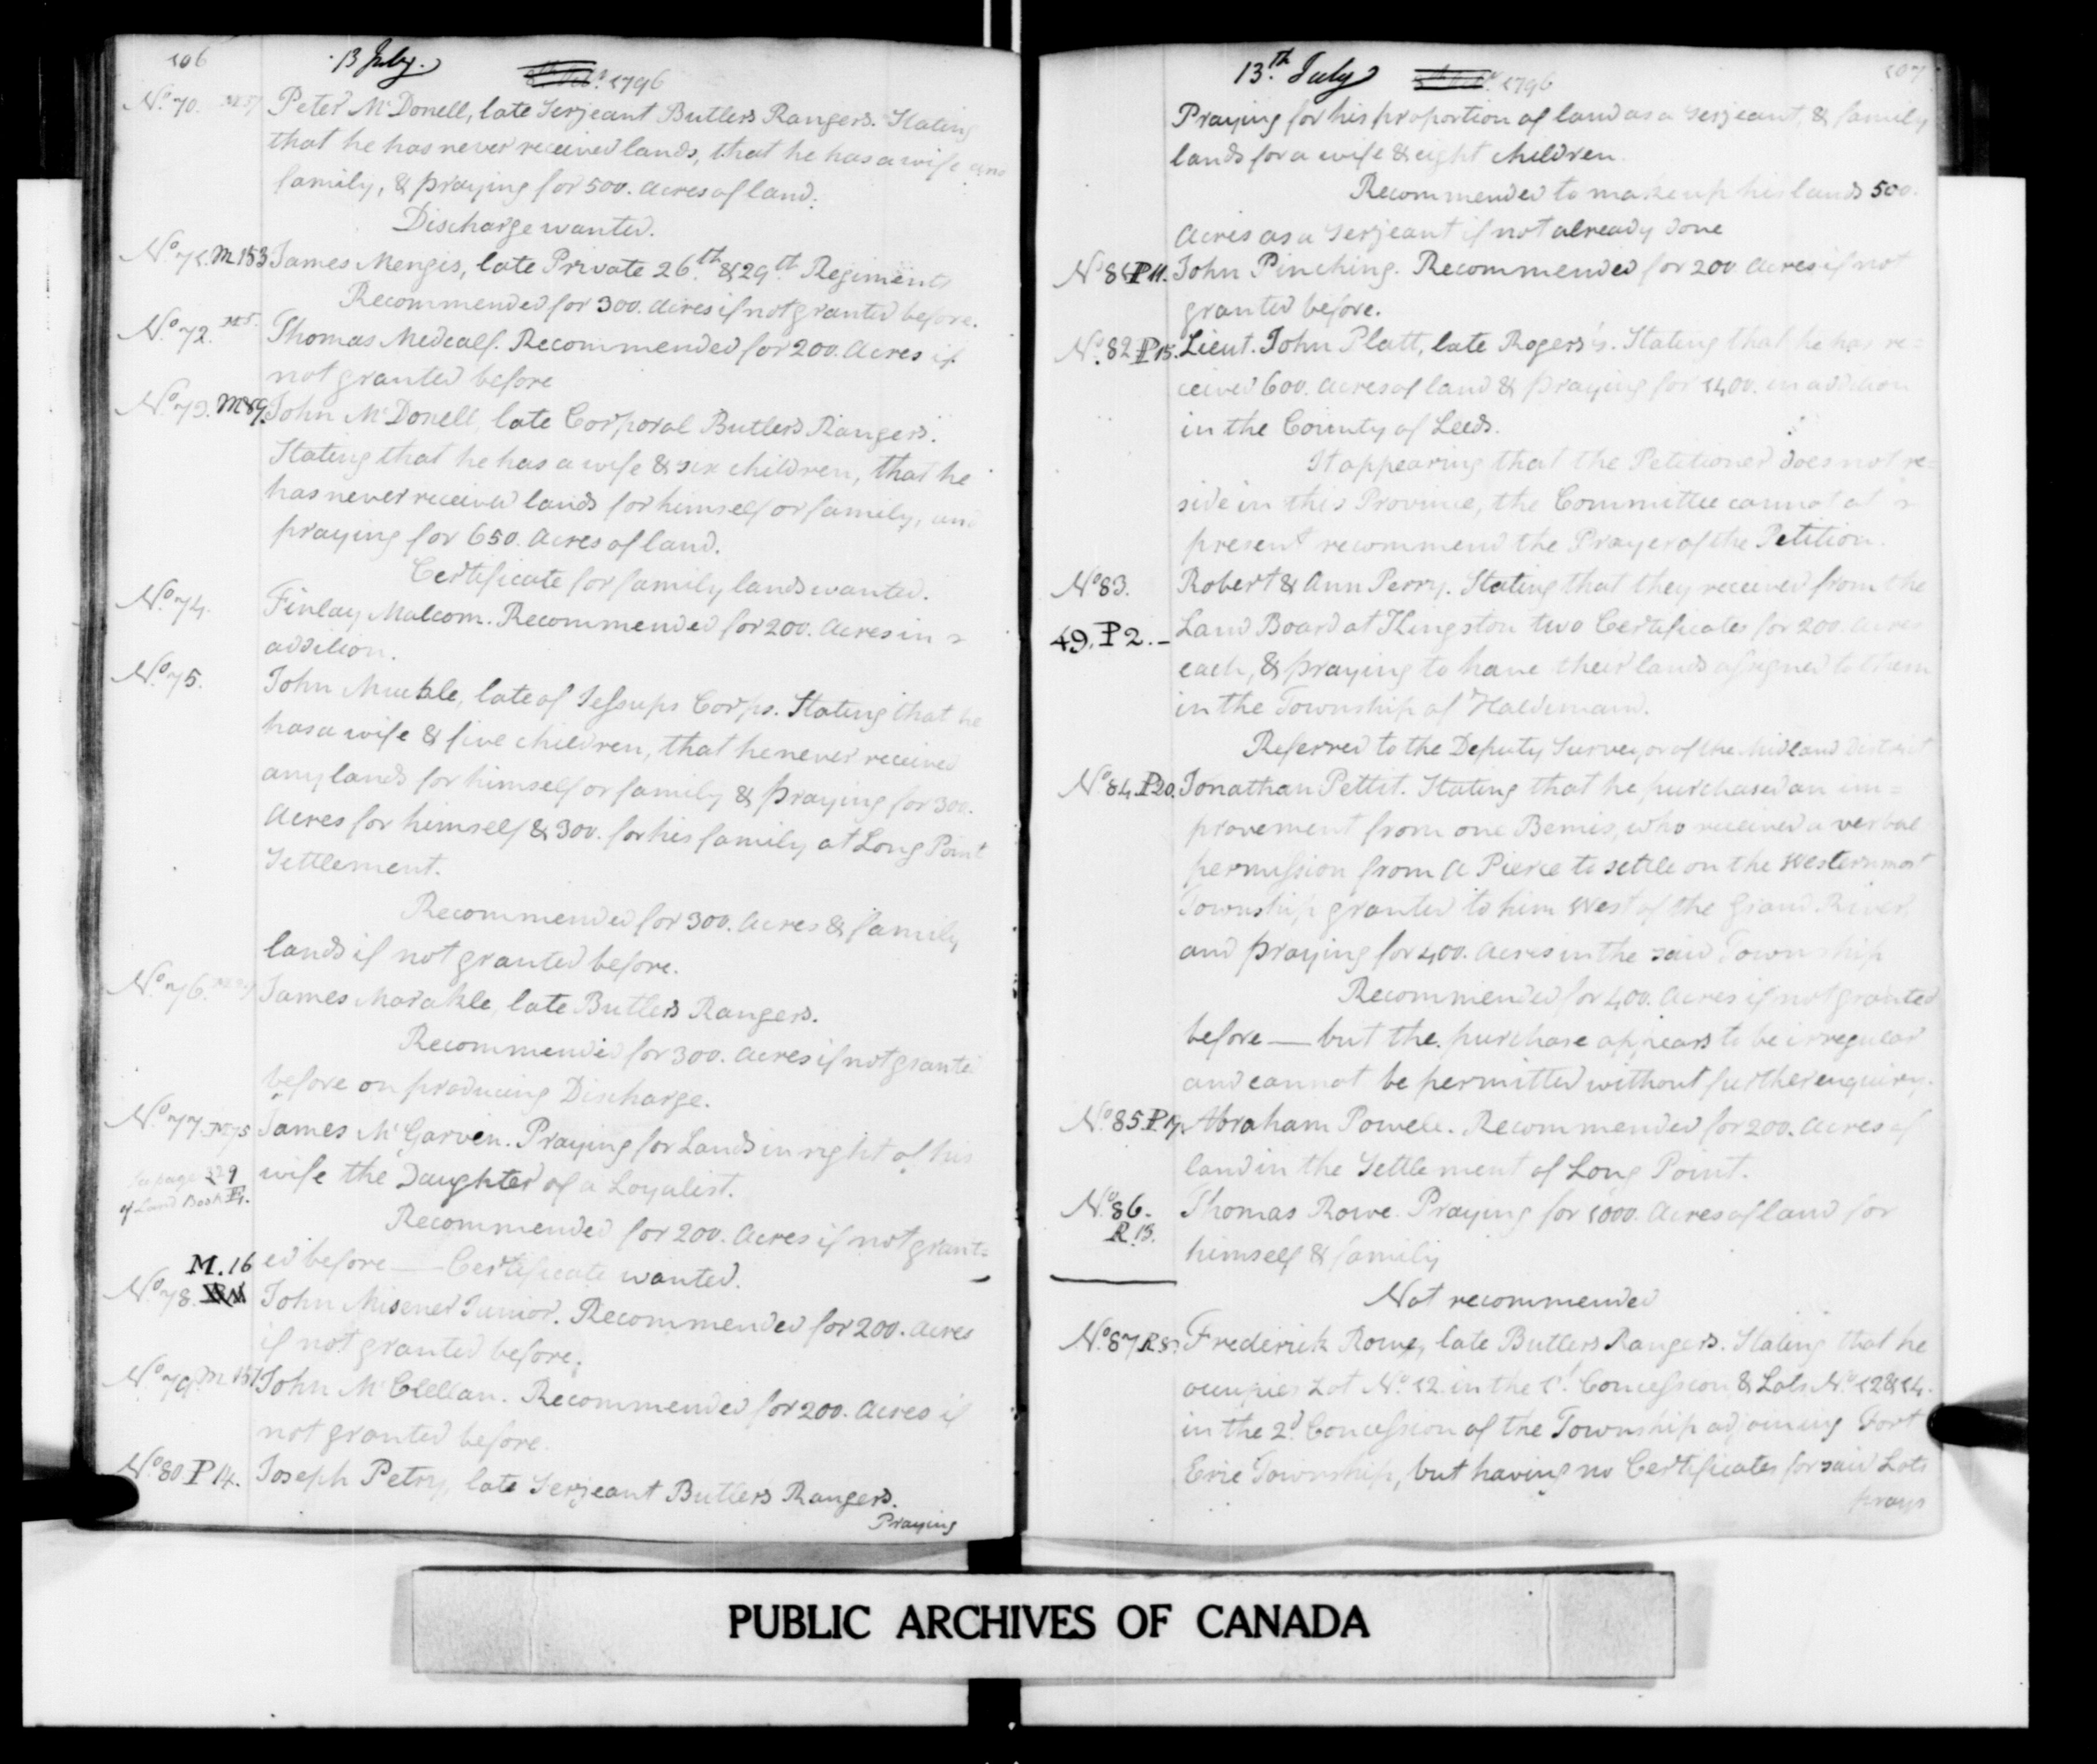 106
13 July. 1796
No. 70. Peter McDonell, late Serjeant Butlers Rangers. Stating
that he has never received lands, that he has a wife and
family, & praying for 500. Acres of land.
Discharge wanted.
No. 71. M153 James Mengis, late Private 26th. & 29th. Regiments
Recommended for 300. Acres if not granted before.
No. 72. M5. Thomas Medcalf. Recommended for 200. Acres if
not granted before
No. 73. M89. John McDonell, late Corporal Butlers Rangers.
Stating that he has a wife & six children, that he
has never received lands for himself or family, and
praying for 650. Acres of land.
Certificate for family lands wanted.
No. 74. Finlay Malcom. Recommended for 200. Acres in
addition.
No. 75. John Muckle, late of Jessups Corps. Stating that he
has a wife & five children, that he never received
any lands for himself or family & praying for 300.
Acres for himself & 300. for his family at Long Point
Settlement.
Recommended for 300. Acres & family
lands if not granted before.
No. 76. James Marakle, late Butlers Rangers.
Recommended for 300. Acres if not granted
before on producing Discharge.
No. 77. M75 James McGarven. Praying for Lands in right of his
see page 229
wife the Daughter of a Loyalist.
of Land Book
Recommended for 200. Acres if not grant=
M. 16
ed before — Certificate wanted.
No. 78. John Misener Junior. Recommended for 200. Acres
if not granted before.
No. 79. M151 John McClellan. Recommended for 200. Acres if
not granted before.
No. 80 P14. Joseph Petry, late Serjeant Butlers Rangers.
Praying
13.th July 1796
107
Praying for his proportion of land as a Serjeant, & family
lands for a wife & eight children.
Recommended to make up his lands 500.
Acres as a Serjeant if not already done
No. 81 P11. John Pinching. Recommended for 200 Acres if not
granted before.
No. 82 P15. Lieut. John Platt, late Rogers's. Stating that he has re=
ceived 600. Acres of land & praying for 1400. in addition
in the County of Leeds.
It appearing that the Petitioner does not re=
side in this Province, the Committee cannot at
present recommend the Prayer of the Petition.
No. 83. Robert & Ann Perry. Stating that they received from the
49. P2. — Land Board at Kingston two Certificates for 200. Acres
each, & praying to have their lands assigned to them
in the Township of Haldimand.
Referred to the Deputy Surveyor of the Midland District
No. 84. P20. Jonathan Pettit. Stating that he purchased an im=
provement from one Bemis, who received a verbal
permission from A Pierce to settle on the Westernmost
Township granted to him West of the Grand River,
and praying for 400. Acres in the said Township
Recommended for 400. Acres if not granted
before — but the purchase appears to be irregular
and cannot be permitted without further enquiry.
No. 85 P.17. Abraham Powell. Recommended for 200. Acres of
land in the Settlement of Long Point.
No. 86. Thomas Rowe. Praying for 1000. Acres of land for
R.13.
himself & family
Not recommended
No. 87 R8. Frederick Rowe, late Butlers Rangers. Stating that he
occupies Lot No. 12. in the 1st. Concession & Lots No. 12 & 14.
in the 2d. Concession of the Township adjoining Fort
Erie Township, but having no Certificates for said Lots
prays
PUBLIC ARCHIVES OF CANADA